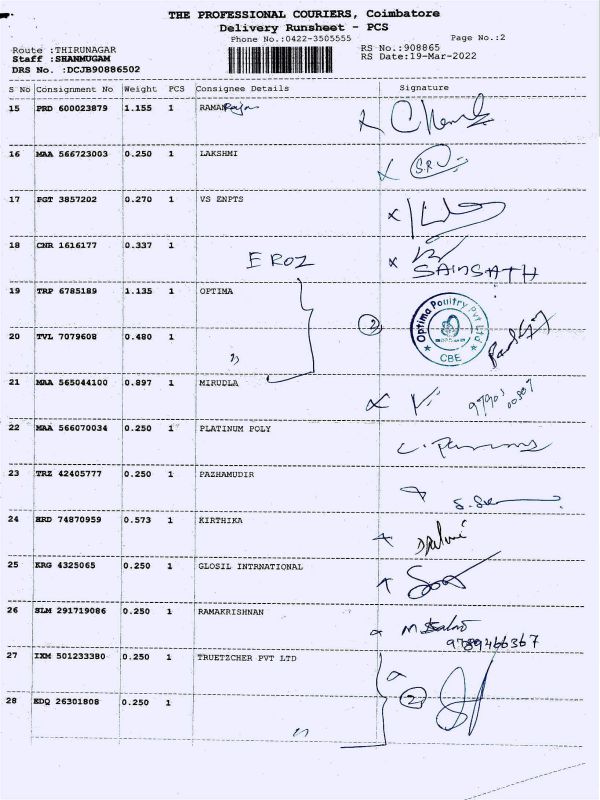 THE PROFESSIONAL COURIERS, Coimbatore
Delivery Runsheet - PCS
Phone No.:0422-3505555 Page No.:2
Route :THIRUNAGAR RS No.:908865
Staff :SHANMUGAM RS Date:19-Mar-2022
DRS No. :DCJB90886502
S No Consignment No Weight PCS Consignee Details Signature
15 PRD 600023879 1.155 1 RAMAN Rajan
16 MAA 566723003 0.250 1 LAKSHMI
17 PGT 3857202 0.270 1 VS ENPTS
18 CNR 1616177 0.337 1
EROZ SAINSATH
19 TRP 6785189 1.135 1 OPTIMA
2 Optima Poultry Pvt Ltd
CBE
20 TVL 7079608 0.480 1 "
21 MAA 565044100 0.897 1 MIRUDLA
22 MAA 566070034 0.250 1 PLATINUM POLY
23 TRZ 42405777 0.250 1 PAZHAMUDIR
24 HRD 74870959 0.573 1 KIRTHIKA
25 KRG 4325065 0.250 1 GLOSIL INTRNATIONAL
26 SLM 291719086 0.250 1 RAMAKRISHNAN
9789466367
27 IXM 501233380 0.250 1 TRUETZCHER PVT LTD
2
28 EDQ 26301808 0.250 1 "